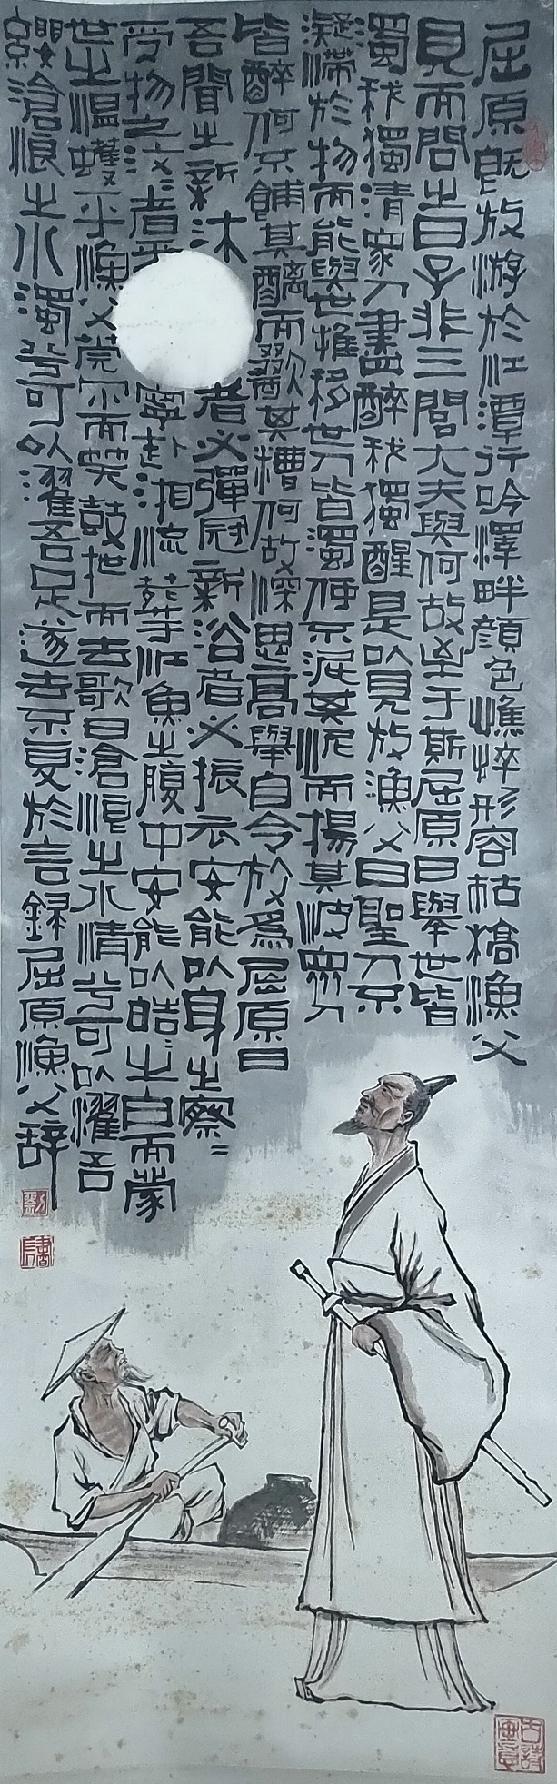 屈原既放游於江潭行吟澤畔顏色憔悴形容枯槁漁父
見而問之曰子非三閭大夫與何故至于斯屈原曰舉世皆
濁我獨清衆人盡醉我獨醒是以見放漁父曰聖人不
凝滯於物而能與世推移世人皆濁何不淈其泥而揚其波衆人
皆醉何不餔其醨而歠其糟何故深思高舉自令放爲屈原曰
吾聞之新沐者必彈冠新浴者必振衣安能以身之察〻
受物之汶〻者乎寧赴湘流葬于江魚之腹中安能以皓〻之白而蒙
世之温蠖乎漁父莞爾而笑鼓枻而去歌曰滄浪之水清兮可以濯吾
纓滄浪之水濁兮可以濯吾足遂去不復於言錄屈原漁父辭